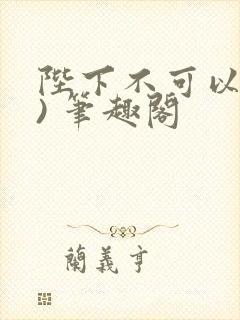 陛下不可以
)筆趣閣
蘭義亨